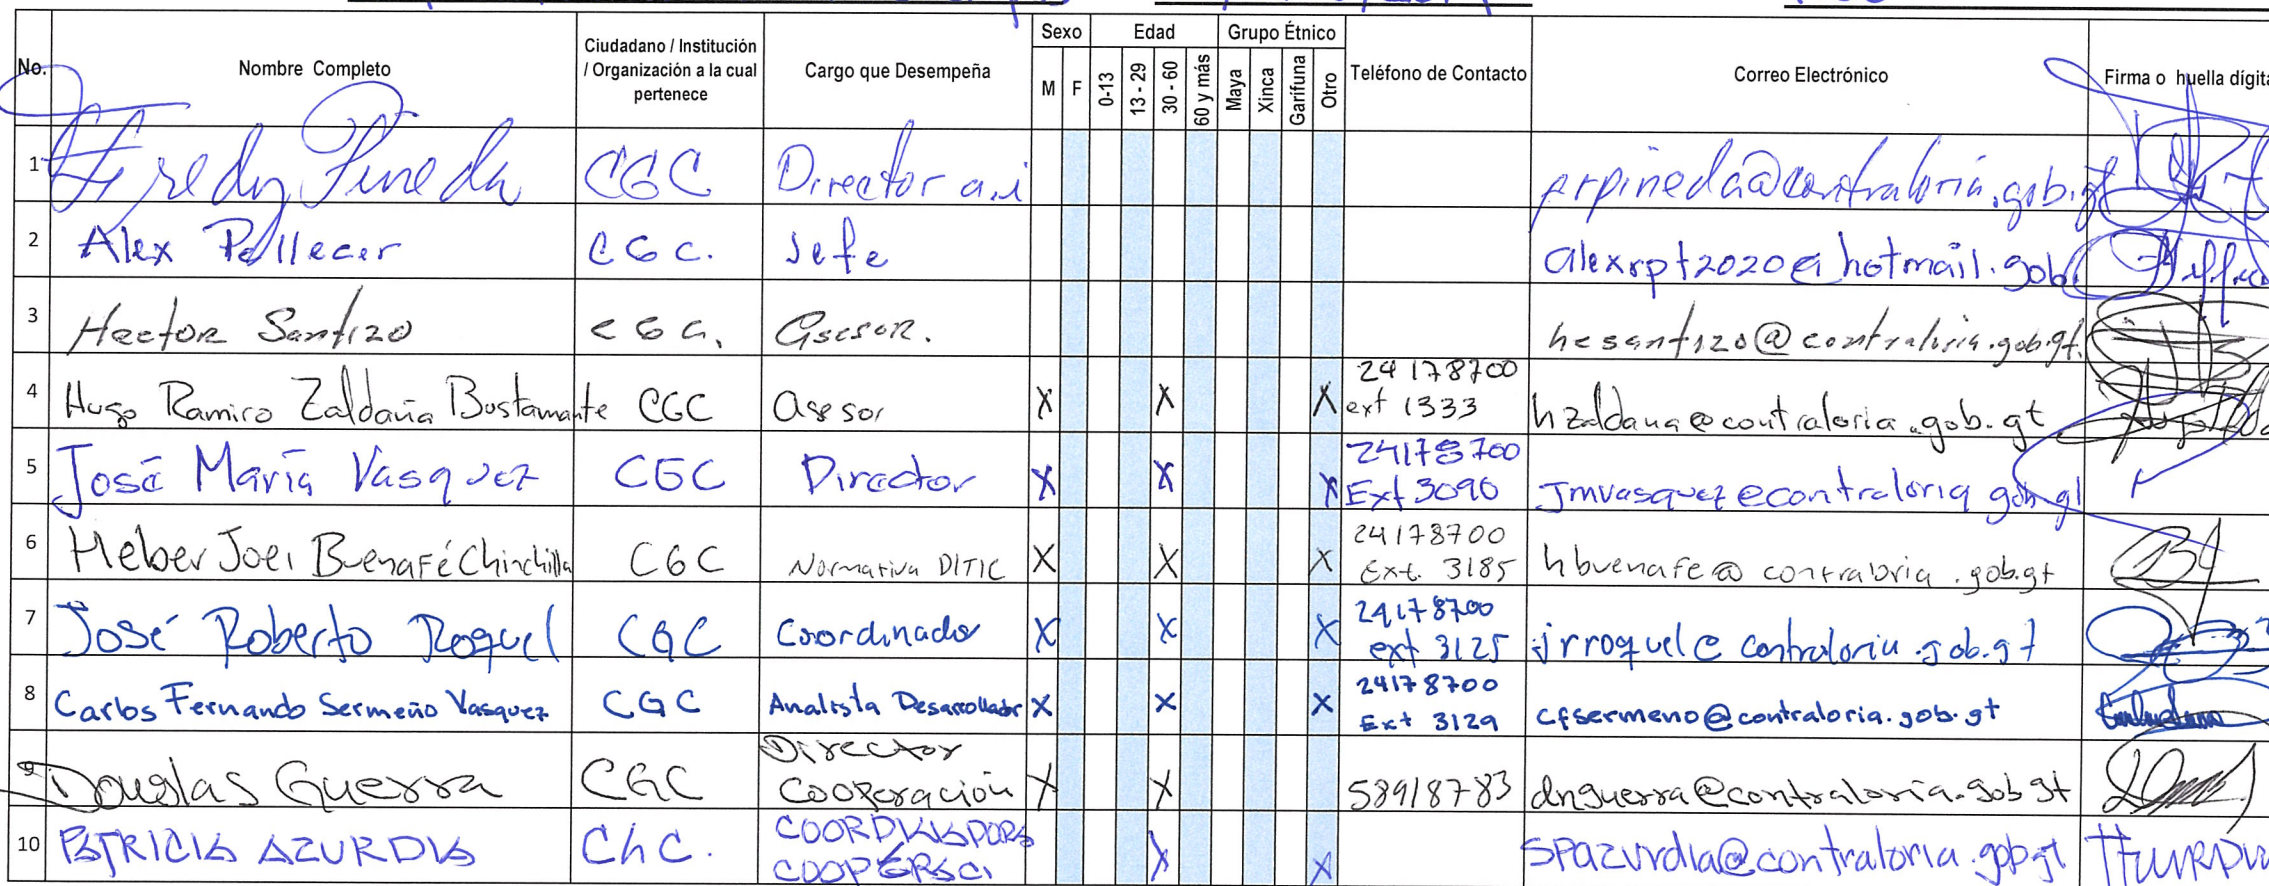 No. Nombre Completo Ciudadano / Institución / Organización a la cual pertenece Cargo que Desempeña Sexo M F Edad 0-13 13 - 29 30 - 60 60 y más Grupo Étnico Maya Xinca Garífuna Otro Teléfono de Contacto Correo Electrónico Firma o huella dígita
1 Fredy Pineda CGC Director a.i frpineda@contraloria.gob.gt
2 Alex Pellecer CGC. Jefe alexrpt2020@hotmail.gob
3 Hector Santizo CGC. Asesor. hesantizo@contraloria.gob.gt.
4 Hugo Ramiro Zaldaña Bustamante CGC Asesor X X X 24178700 ext 1333 hzaldana@contraloria.gob.gt
5 José María Vasquez CGC Director X X X 24178700 Ext 3090 Jmvasquez@contraloria gob.gt
6 Heber Joel Buenafé Chinchilla CGC Normativa DITIC X X X 24178700 Ext. 3185 hbuenafe@contraloria.gob.gt
7 José Roberto Roquel CGC Coordinador X X X 24178700 ext 3125 jrroquel@contraloria.gob.gt
8 Carlos Fernando Sermeño Vasquez CGC Analista Desarrollador X X X 24178700 Ext 3129 cfsermeno@contraloria.gob.gt
9 Douglas Guerra CGC Director Cooperación X X 58918783 dnguerra@contraloria.gob.gt
10 PATRICIA AZURDIA CGC. COORDINADORA COOPERACI X X spazurdia@contraloria.gob.gt